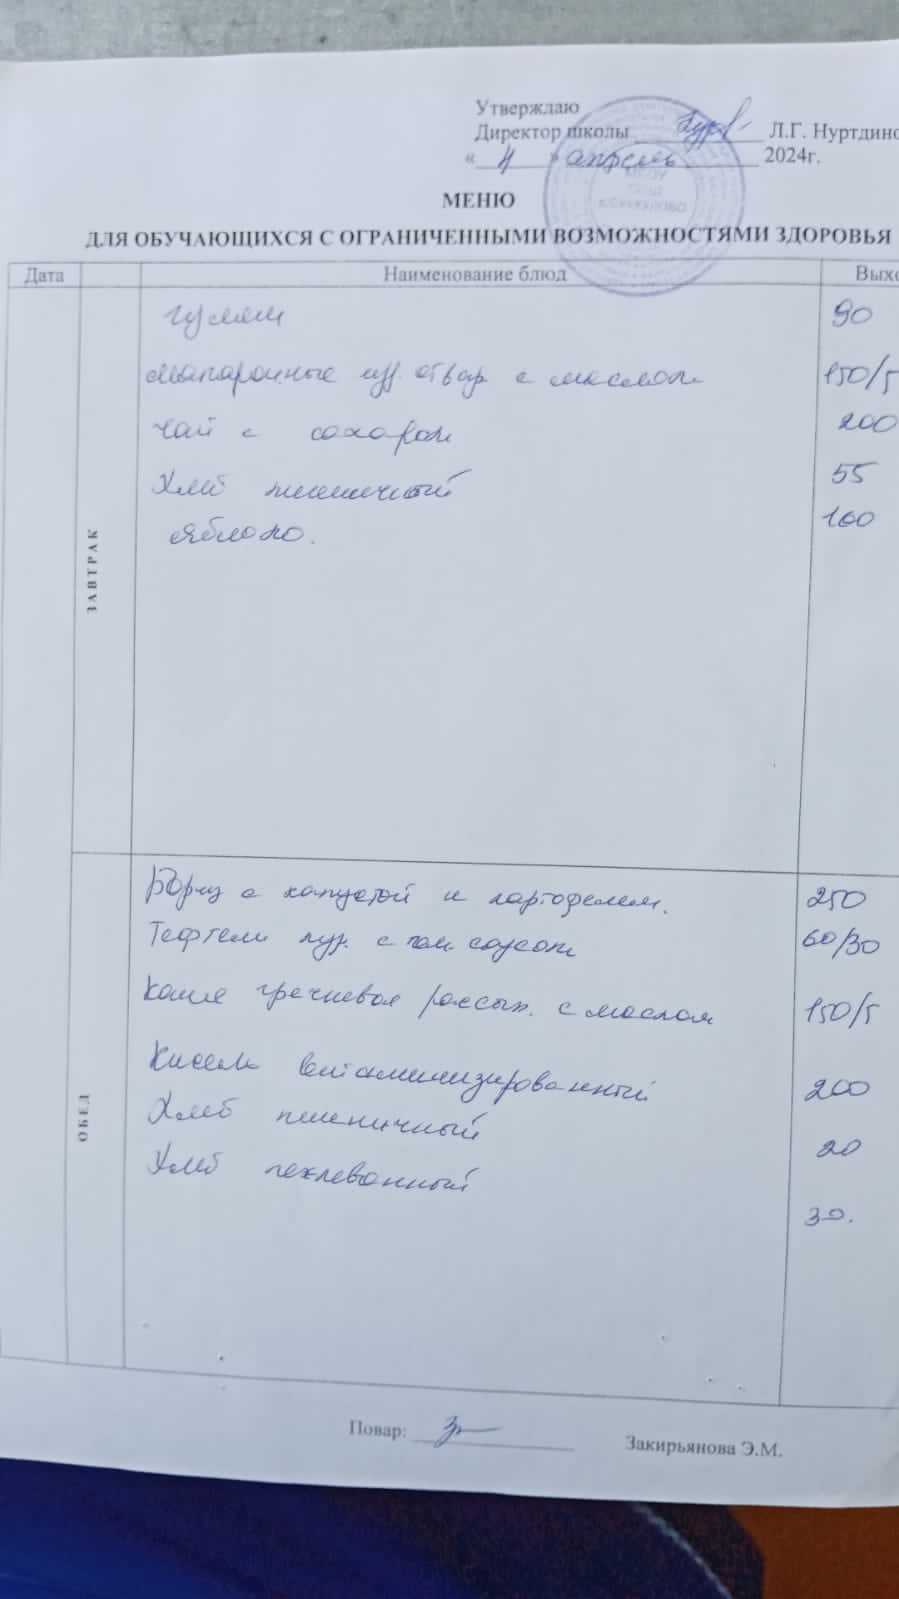 Утверждаю
Директор школы Л.Г. Нуртдино
« 4 » апрель 2024г.
МЕНЮ
ДЛЯ ОБУЧАЮЩИХСЯ С ОГРАНИЧЕННЫМИ ВОЗМОЖНОСТЯМИ ЗДОРОВЬЯ
Дата Наименование блюд Выхо
ЗАВТРАК
гуляш 90
макаронные изд. отвар. с маслом 150/5
чай с сахаром 200
Хлеб пшеничный 55
яблоко. 100
ОБЕД
Борщ с капустой и картофелем. 250
Тефтели с том. соусом 60/30
Каша гречневая рассып. с маслом 150/5
Кисель витаминизированный 200
Хлеб пшеничный 20
Хлеб пеклеванный 30.
Повар: Закирьянова Э.М.